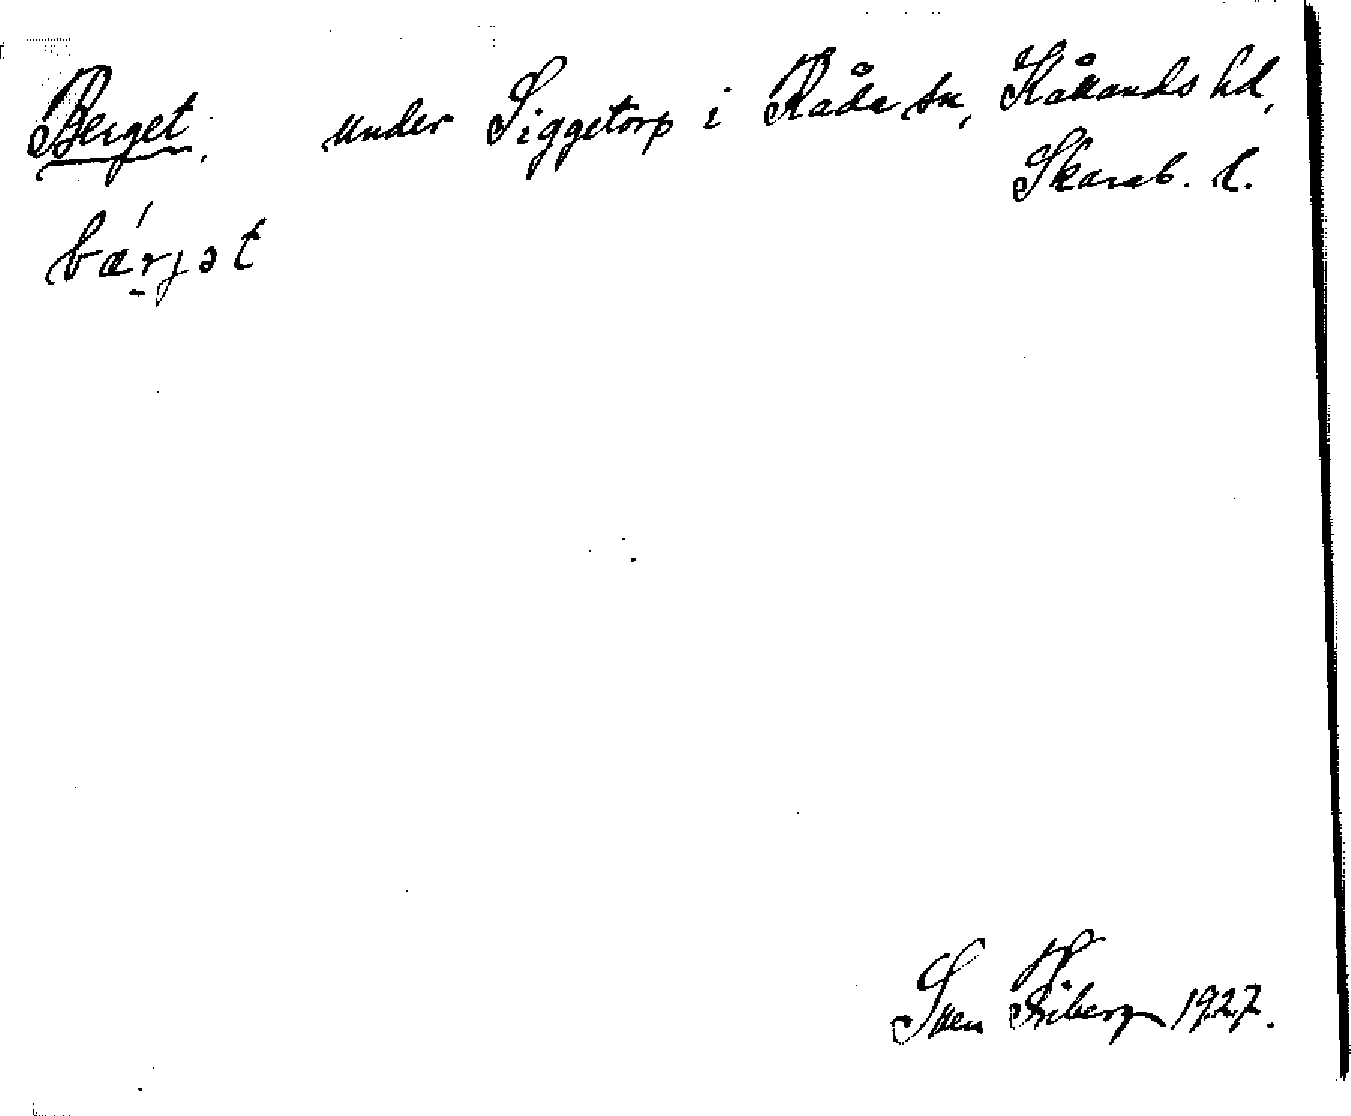 Berget. under Siggetorp i Råda sn, Kållands hd,
Skarab. l.
bæ̀rjət
Sven Friberg 1927.